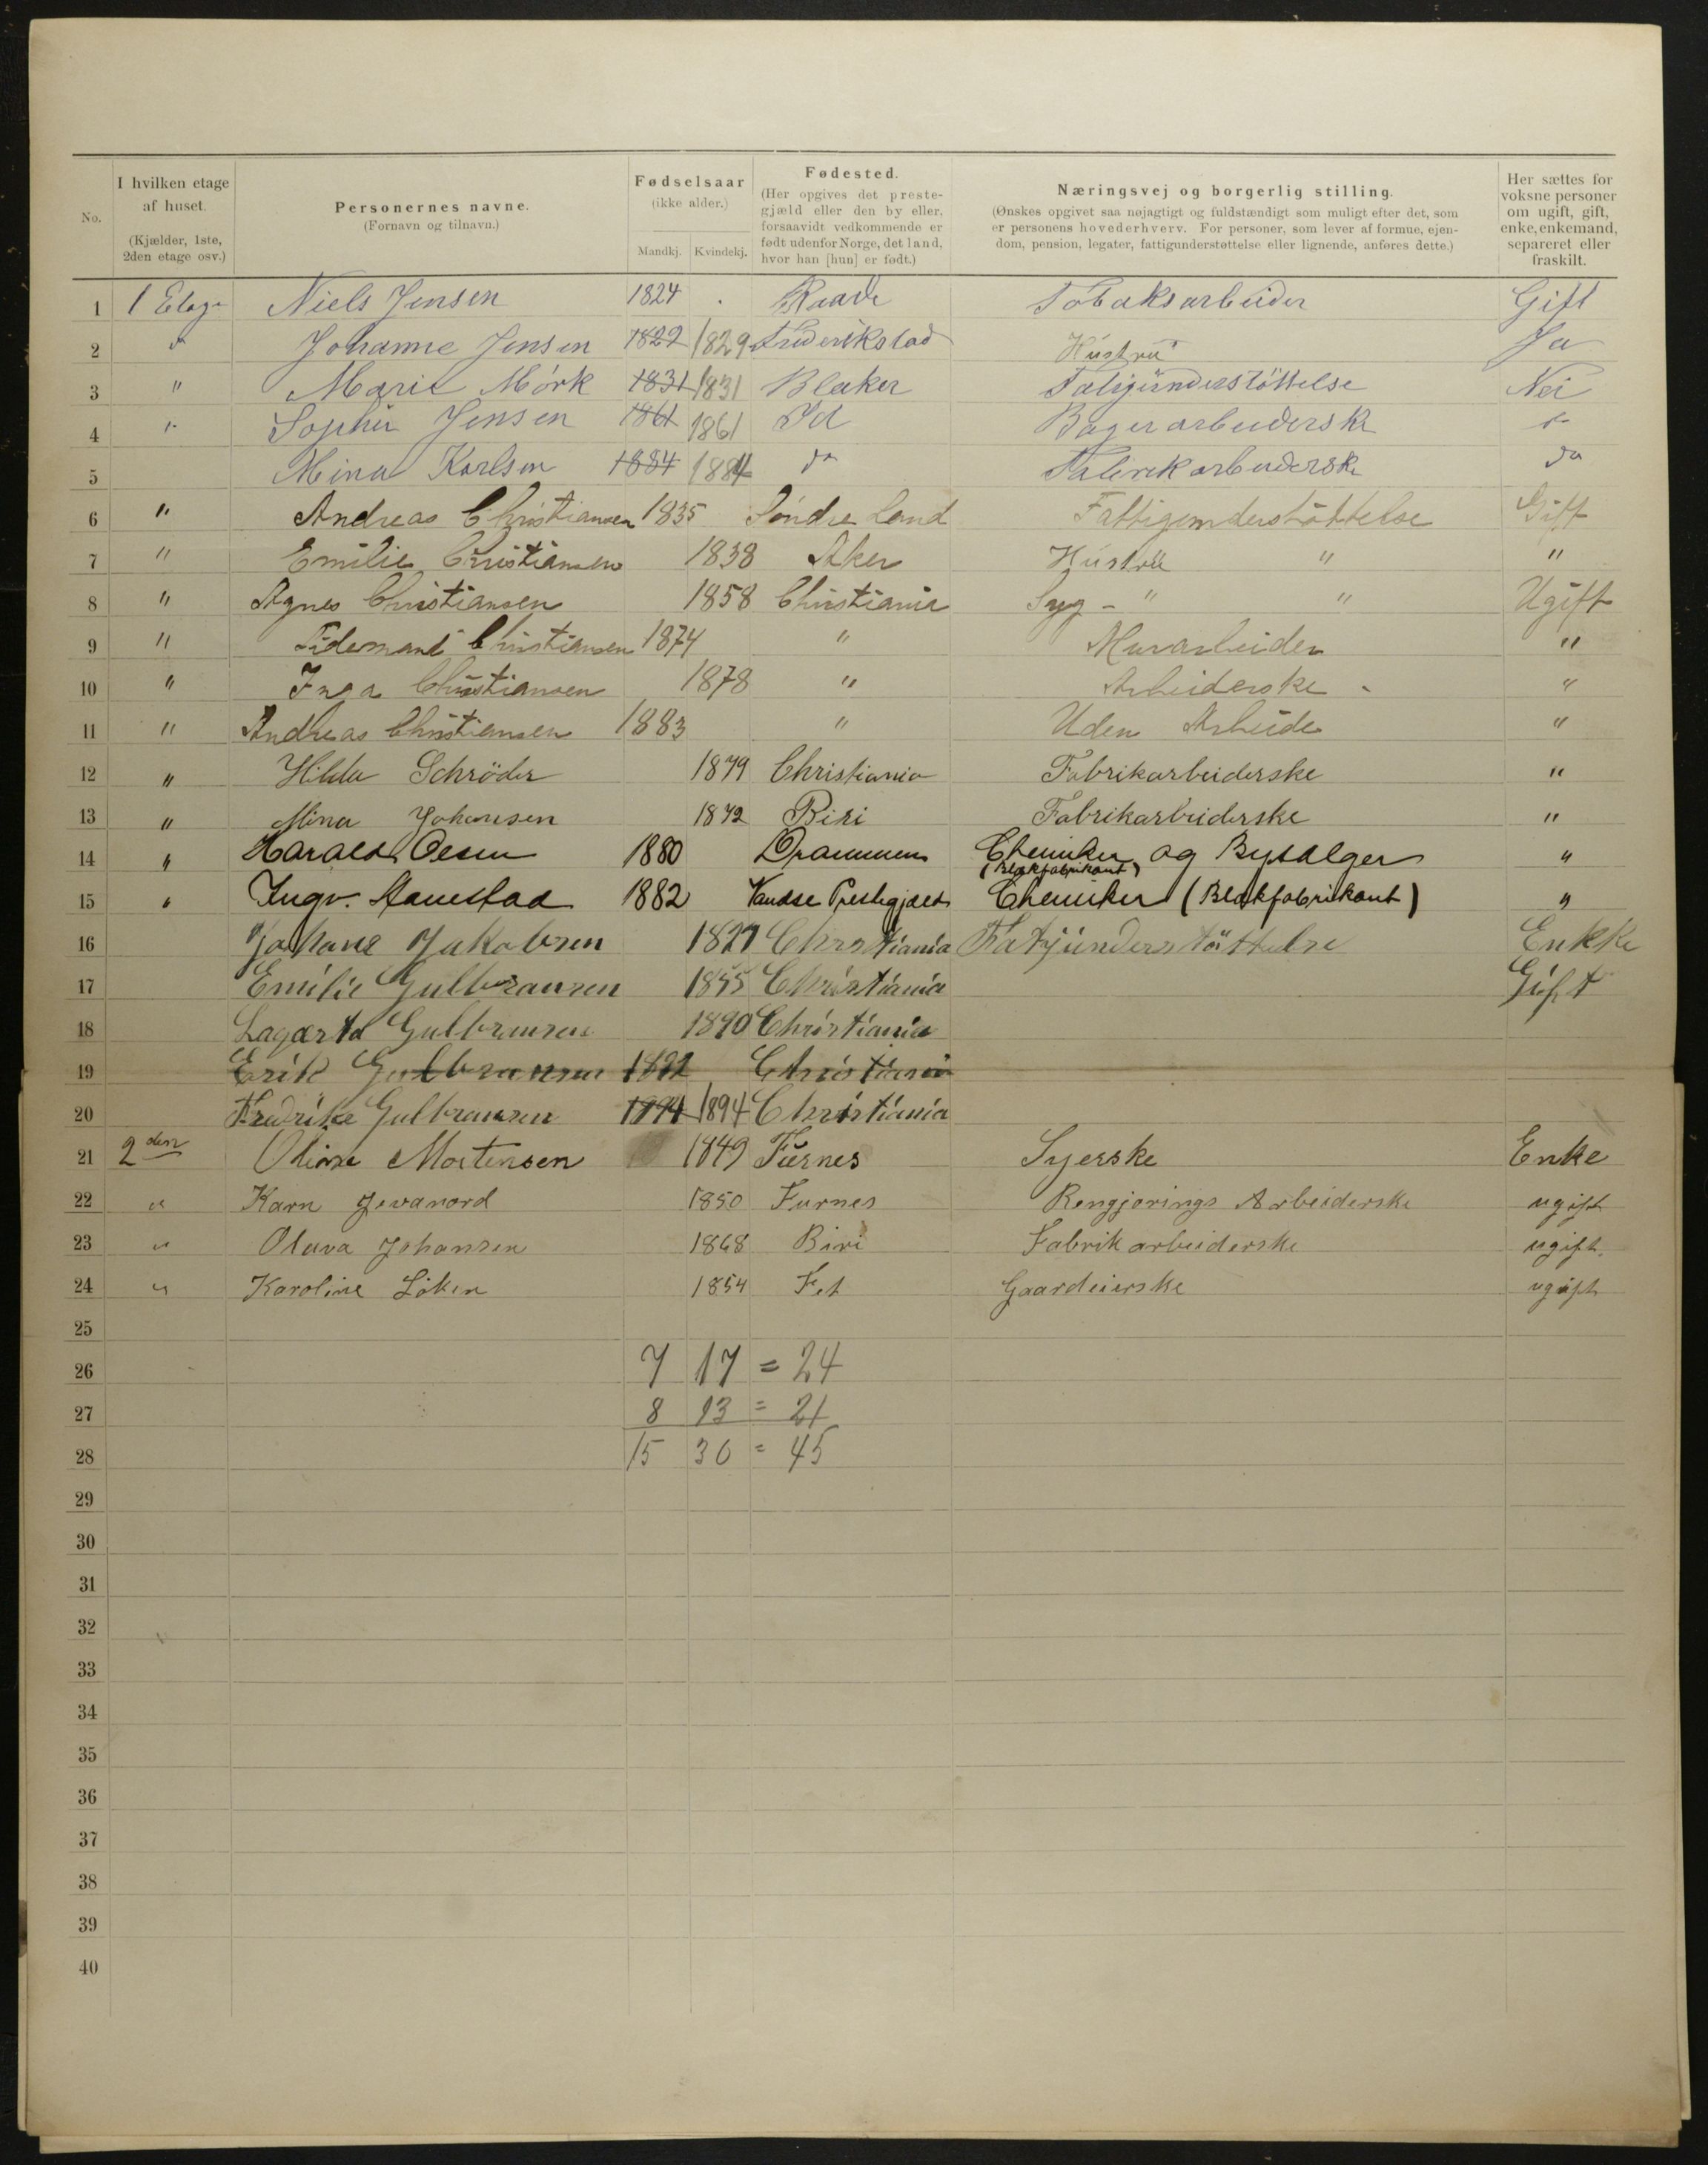 No. | I hvilken etage af huset. (Kjælder, 1ste, 2den etage osv.) | Personernes navne. (Fornavn og tilnavn.) | Fødselsaar (ikke alder.) Mandkj. Kvindekj. | Fødested. (Her opgives det prestegjæld eller den by eller, forsaavidt vedkommende er født udenfor Norge, det land, hvor han [hun] er født.) | Næringsvej og borgerlig stilling. (Ønskes opgivet saa nøjagtigt og fuldstændigt som muligt efter det, som er personens hovederhverv. For personer, som lever af formue, ejendom, pension, legater, fattigunderstøttelse eller lignende, anføres dette.) | Her sættes for voksne personer om ugift, gift, enke, enkemand, separeret eller fraskilt.
1 1 Etage Niels Jensen 1824 Raade Tobaksarbeider Gift
2 do Johanne Jensen 1829 1829 Frederikstad Hustru Ja
3 " Marie Mörk 1831 1831 Blaker Fatigünderstöttelse Nei
4 " Sophie Jensen 1861 1861 Id Bagerarbeiderske
5 Mina Karlsen 1884 1884 do Fabrikarbeiderske do
6 " Andreas Christiansen 1835 Söndre Land Fattigunderstöttelse Gift
7 " Emilie Christiansen 1838 Aker Hustru " "
8 " Agnes Christiansen 1858 Christiania Syg - " " Ugift
9 " Tidemand Christiansen 1874 " Murarbeider "
10 " Inga Christiansen 1878 " Arbeiderske "
11 " Andreas Christiansen 1883 " Uden Arbeide "
12 " Hilda Schröder 1879 Christiania Fabrikarbeiderske "
13 " Mina Johansen 1872 Biri Fabrikarbeiderske "
14 " Harald Olsen 1880 Drammen Chemiker og Bysælger "
(Blækfabrikant)
15 " Ingv. 1882 Vandse Prestegjæld Chemiker (Blækfabrikant) "
16 Johane Jakobsen 1827 Christiania Fatigünderstöttelse Enkke
17 Emilie Gulbransen 1855 Christiania Gift
18 Lagærta Gulbransen 1890 Christiania
19 Erik Gulbransen 1892 Christiania
20 Fredrike Gulbransen 1894 1894 Christiania
21 2den Oline Mortensen 1849 Furnes Syerske Enke
22 " Karn Jevanord 1850 Furnes Rengjørings Arbeiderske ugift
23 " Olava Johansen 1868 Biri Fabrik arbeiderske ugift
24 " Karoline Löken 1854 Fet Gaardeierske ugift
25
26 7 17 = 24
27 8 13 = 21
28 15 30 = 45
29
30
31
32
33
34
35
36
37
38
39
40